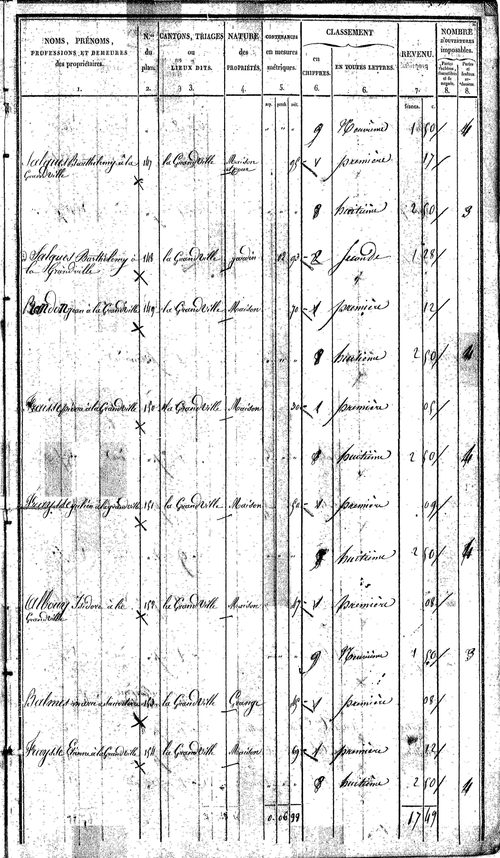 NOMS, PRÉNOMS,
PROFESSIONS ET DEMEURES
des propriétaires.
1.
N.os
du
plan.
2.
CANTONS, TRIAGES
ou
LIEUX DITS.
3.
NATURE
des
PROPRIÉTÉS.
4.
CONTENANCES
en mesures
métriques.
5.
CLASSEMENT
en
CHIFFRES.
6.
EN TOUTES LETTRES.
6.
REVENU.
7.
NOMBRE
D'OUVERTURES
imposables.
8.
8.
francs. c.
9 Neuvième 1 50 4
Salques Barthélemy à la 147 la GrandVille Maison 95 1 première 17
GrandVille
8 huitième 2 50 3
Salques Barthélemy à 148 la GrandVille jardin 2 seconde 1 28
la Grandville
jean à la GrandVille 149 la GrandVille Maison 70 1 première 12
8 huitième 2 50 4
à la GrandVille 150 la GrandVille Maison 30 1 première 05
8 huitième 2 50 4
151 la GrandVille Maison 50 1 première 09
8 huitième 2 50 4
Albouy Isidore à la 152 la GrandVille Maison 47 1 première 08
GrandVille
9 Neuvième 1 50 3
Balmes 153 la GrandVille Grange 1 première 08
Etienne à la GrandVille 154 la GrandVille Maison 69 1 première 12
8 huitième 2 50 4
0. 06 99 17 49